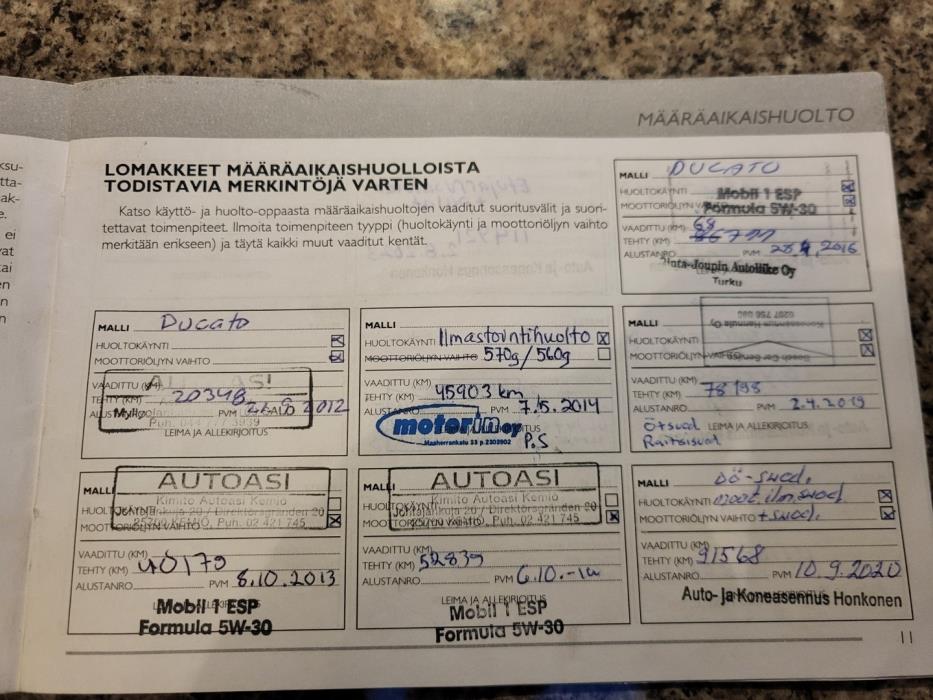 MÄÄRÄAIKAISHUOLTO
LOMAKKEET MÄÄRÄAIKAISHUOLLOISTA
TODISTAVIA MERKINTÖJÄ VARTEN
Katso käyttö- ja huolto-oppaasta määräaikaishuoltojen vaaditut suoritusvälit ja suori-
tettavat toimenpiteet. Ilmoita toimenpiteen tyyppi (huoltokäynti ja moottoriöljyn vaihto
merkitään erikseen) ja täytä kaikki muut vaaditut kentät.
MALLI DUCATO
HUOLTOKÄYNTI
Mobil 1 ESP
MOOTTORIÖLJYN
Formula 5W-30
VAADITTU (KM) 68
TEHTY (KM)
PVM
ALUSTANRO
Autoliike Oy
Turku
MALLI Ducato
HUOLTOKÄYNTI
MOOTTORIÖLJYN VAIHTO
AUTOASI
VAADITTU (KM)
TEHTY (KM) 20348
PVM 2012
LEIMA JA ALLEKIRJOITUS
MALLI
HUOLTOKÄYNTI Ilmastointihuolto
MOOTTORIÖLJYN VAIHTO 570g/560g
VAADITTU (KM)
TEHTY (KM) 45903 km
PVM 7.5.2014
motorin oy
Maaherrankatu 33 p.2302802
LEIMA JA ALLEKIRJOITUS
P.S
MALLI
0207 756 080
Koneasennus Hannula Oy
HUOLTOKÄYNTI
MOOTTORIÖLJYN VAIHTO
Bosch Car Service
VAADITTU (KM)
TEHTY (KM) 78198
ALUSTANRO PVM 2.4.2019
LEIMA JA ALLEKIRJOITUS
MALLI
AUTOASI
Kimito Autoasi Kemiö
HUOLTOKÄYNTI
Johtajankuja 20 / Direktörsgränden 20
MOOTTORIÖLJYN VAIHTO
25700 KEMIÖ, Puh. 02 421 745
VAADITTU (KM)
TEHTY (KM) 40179
ALUSTANRO PVM 8.10.2013
Mobil 1 ESP
Formula 5W-30
MALLI
AUTOASI
Kimito Autoasi Kemiö
HUOLTOKÄYNTI
Johtajankuja 20 / Direktörsgränden 20
MOOTTORIÖLJYN VAIHTO
25700 KEMIÖ, Puh. 02 421 745
VAADITTU (KM)
TEHTY (KM) 52839
ALUSTANRO PVM 6.10.-14
LEIMA JA ALLEKIRJOITUS
Mobil 1 ESP
Formula 5W-30
MALLI Öö-suod.
HUOLTOKÄYNTI
MOOTTORIÖLJYN VAIHTO + suod.
VAADITTU (KM)
TEHTY (KM) 91568
ALUSTANRO PVM 10.9.2020
Auto- ja Koneasennus Honkonen
11